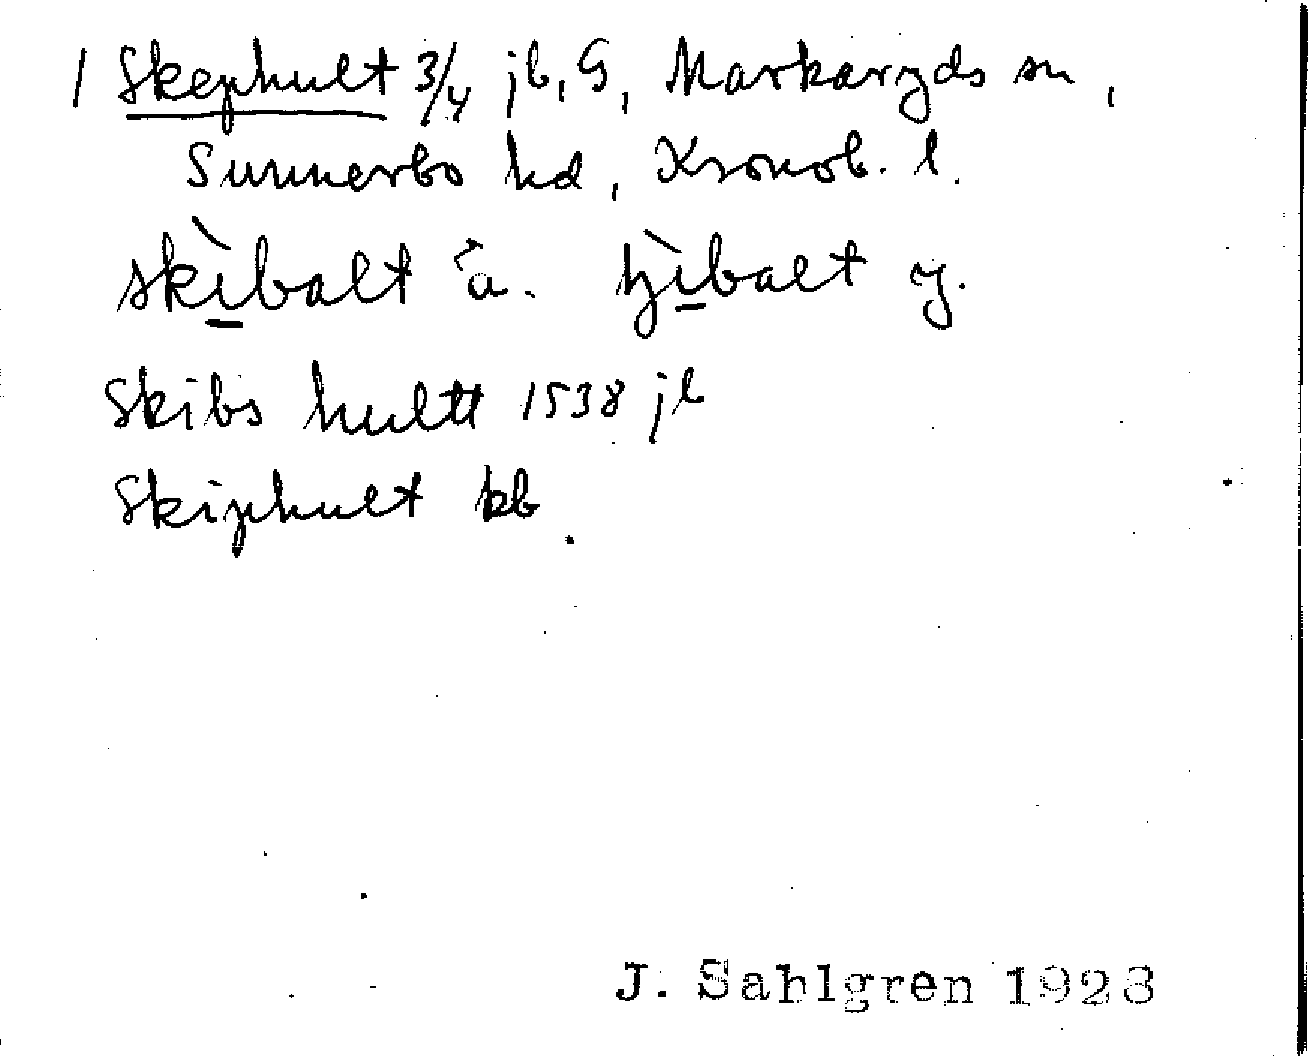 1 Skephult 3/4 jb, G, Markaryds sn,
Sunnerbo hd, Kronob. l.
skìbalt ä. tjìbalt y.
Skibs hultt 1538 jb
Skiphult kb
J. Sahlgren 1928